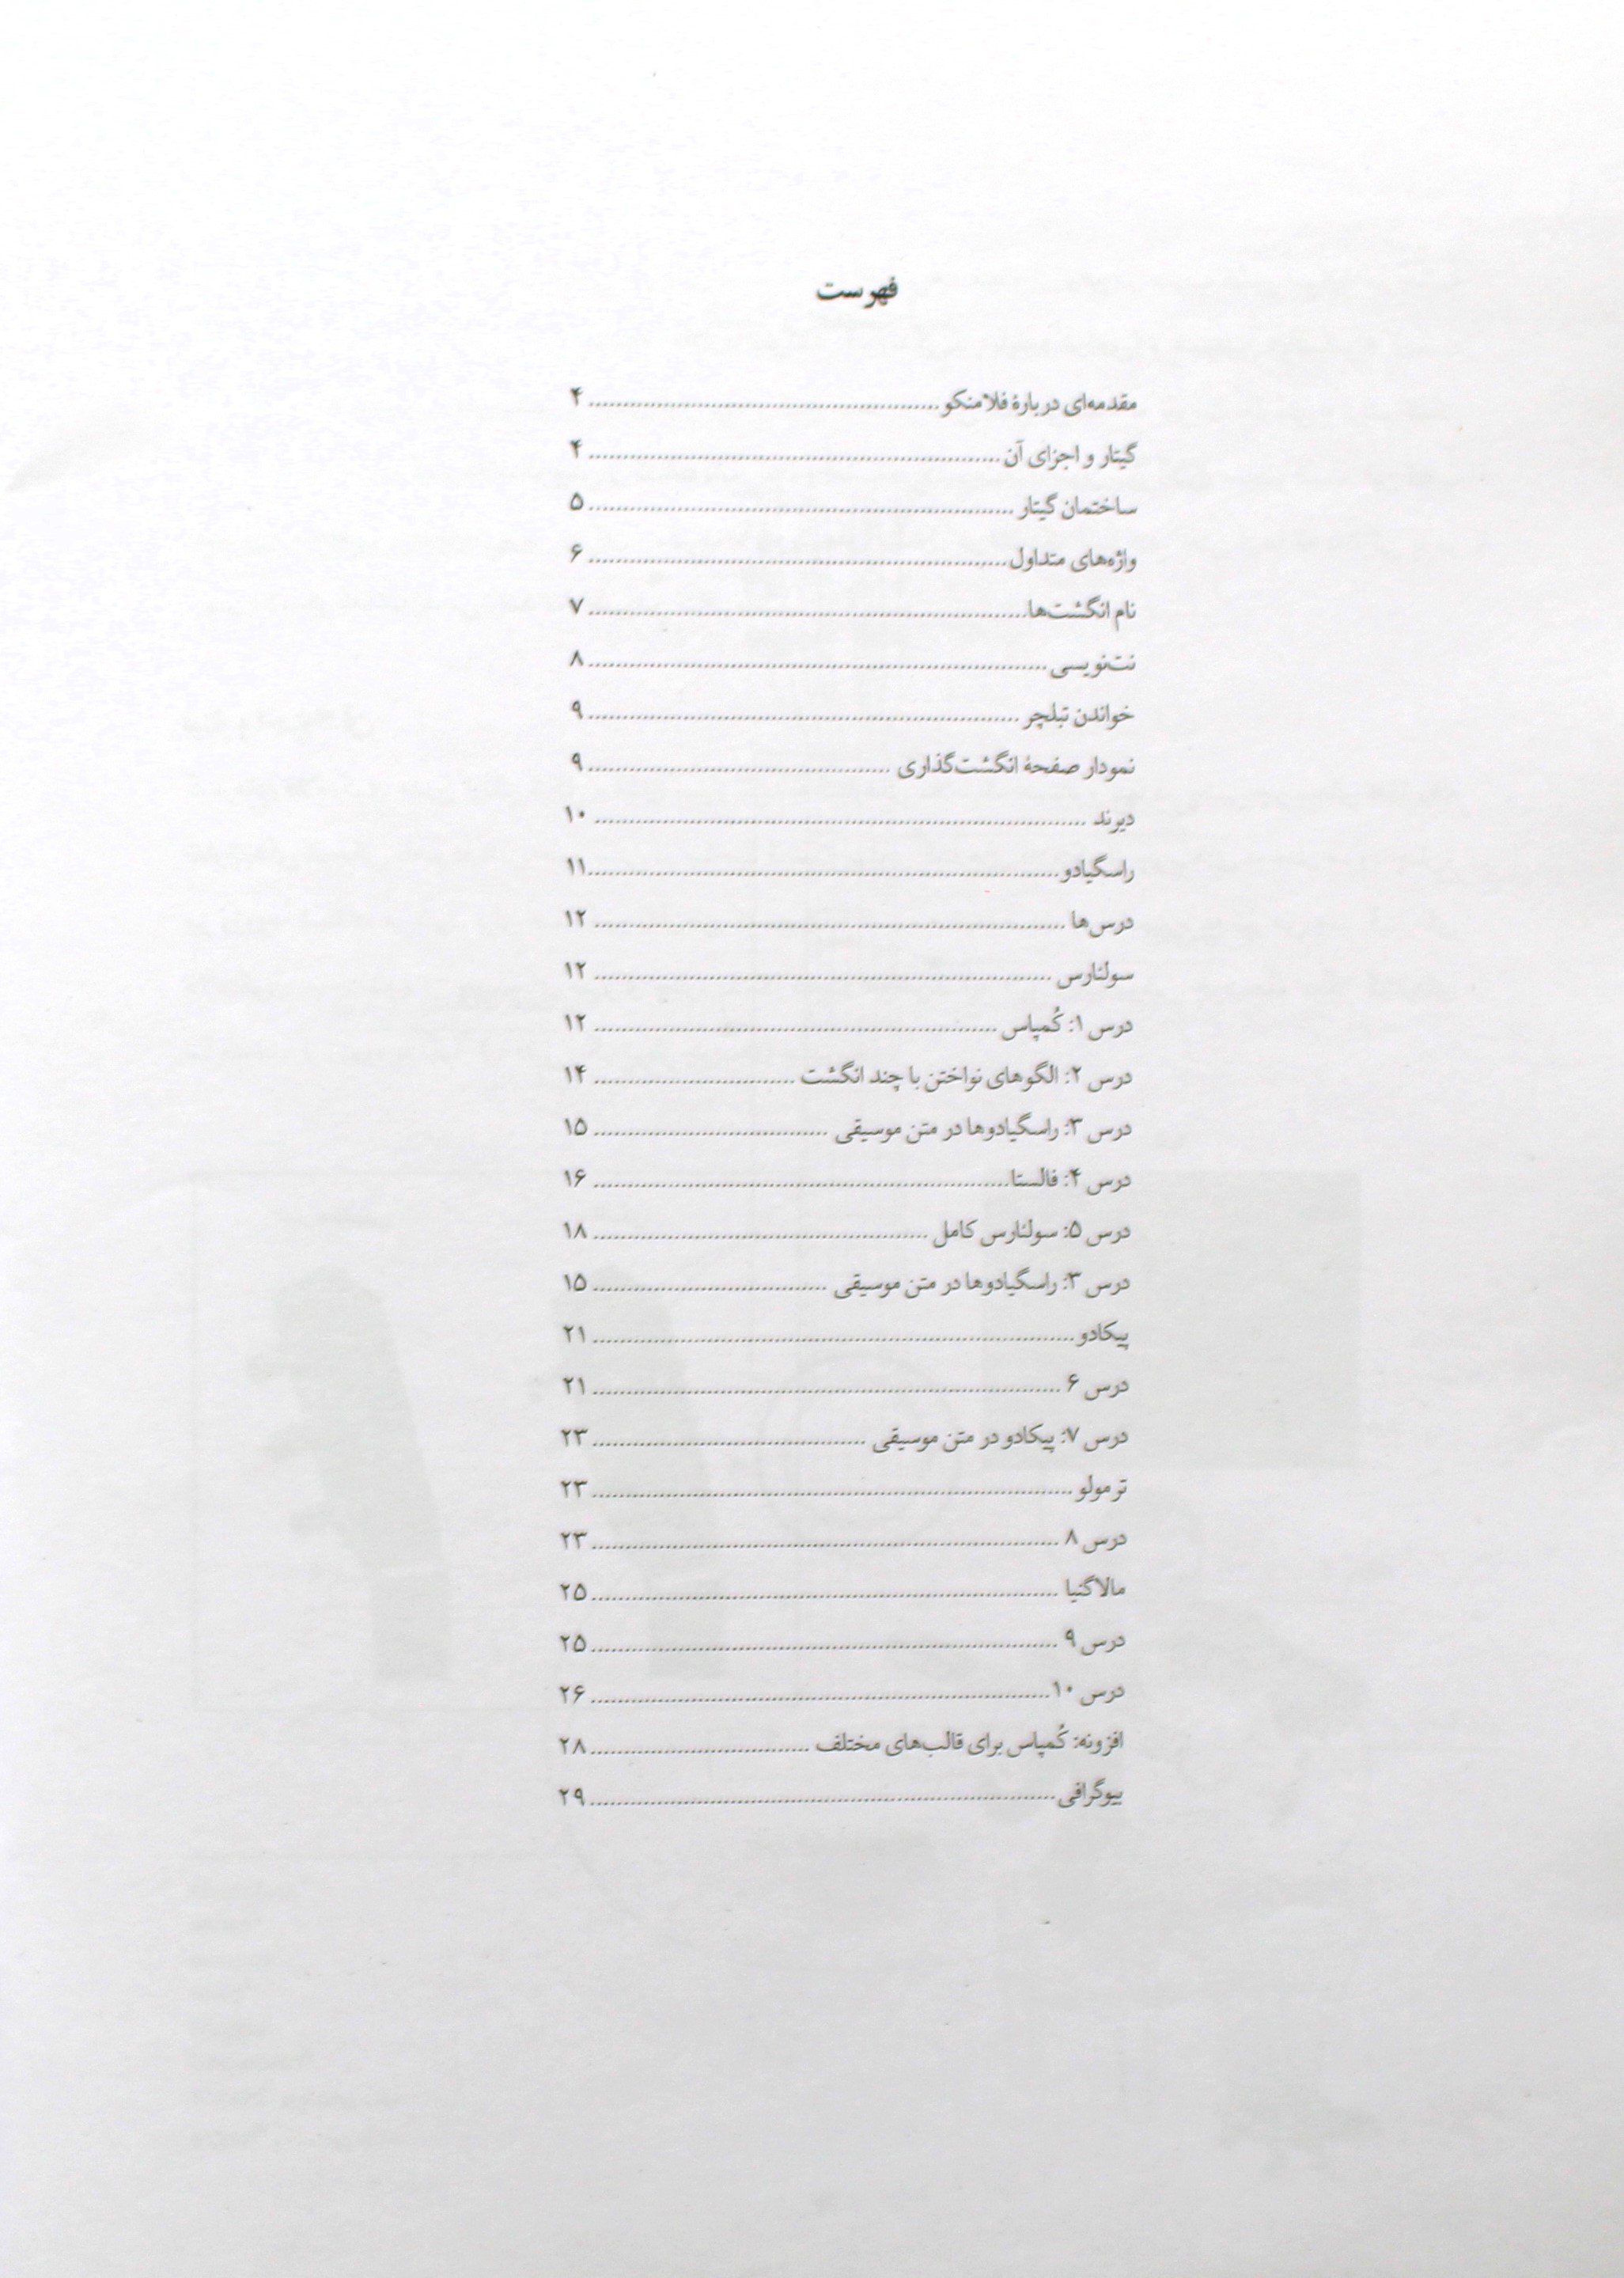 فهرست
مقدمه‌ای دربارهٔ فلامنکو ۴
گیتار و اجزای آن ۴
ساختمان گیتار ۵
واژه‌های متداول ۶
نام انگشت‌ها ۷
نت‌نویسی ۸
خواندن تبلچر ۹
نمودار صفحهٔ انگشت‌گذاری ۹
دیرند ۱۰
راسگیادو ۱۱
درس‌ها ۱۲
سولئارس ۱۲
درس ۱: کُمپاس ۱۲
درس ۲: الگوهای نواختن با چند انگشت ۱۴
درس ۳: راسگیادوها در متن موسیقی ۱۵
درس ۴: فالستا ۱۶
درس ۵: سولئارس کامل ۱۸
درس ۳: راسگیادوها در متن موسیقی ۱۵
پیکادو ۲۱
درس ۶ ۲۱
درس ۷: پیکادو در متن موسیقی ۲۳
ترمولو ۲۳
درس ۸ ۲۳
مالاگنیا ۲۵
درس ۹ ۲۵
درس ۱۰ ۲۶
افزونه: کُمپاس برای قالب‌های مختلف ۲۸
بیوگرافی ۲۹